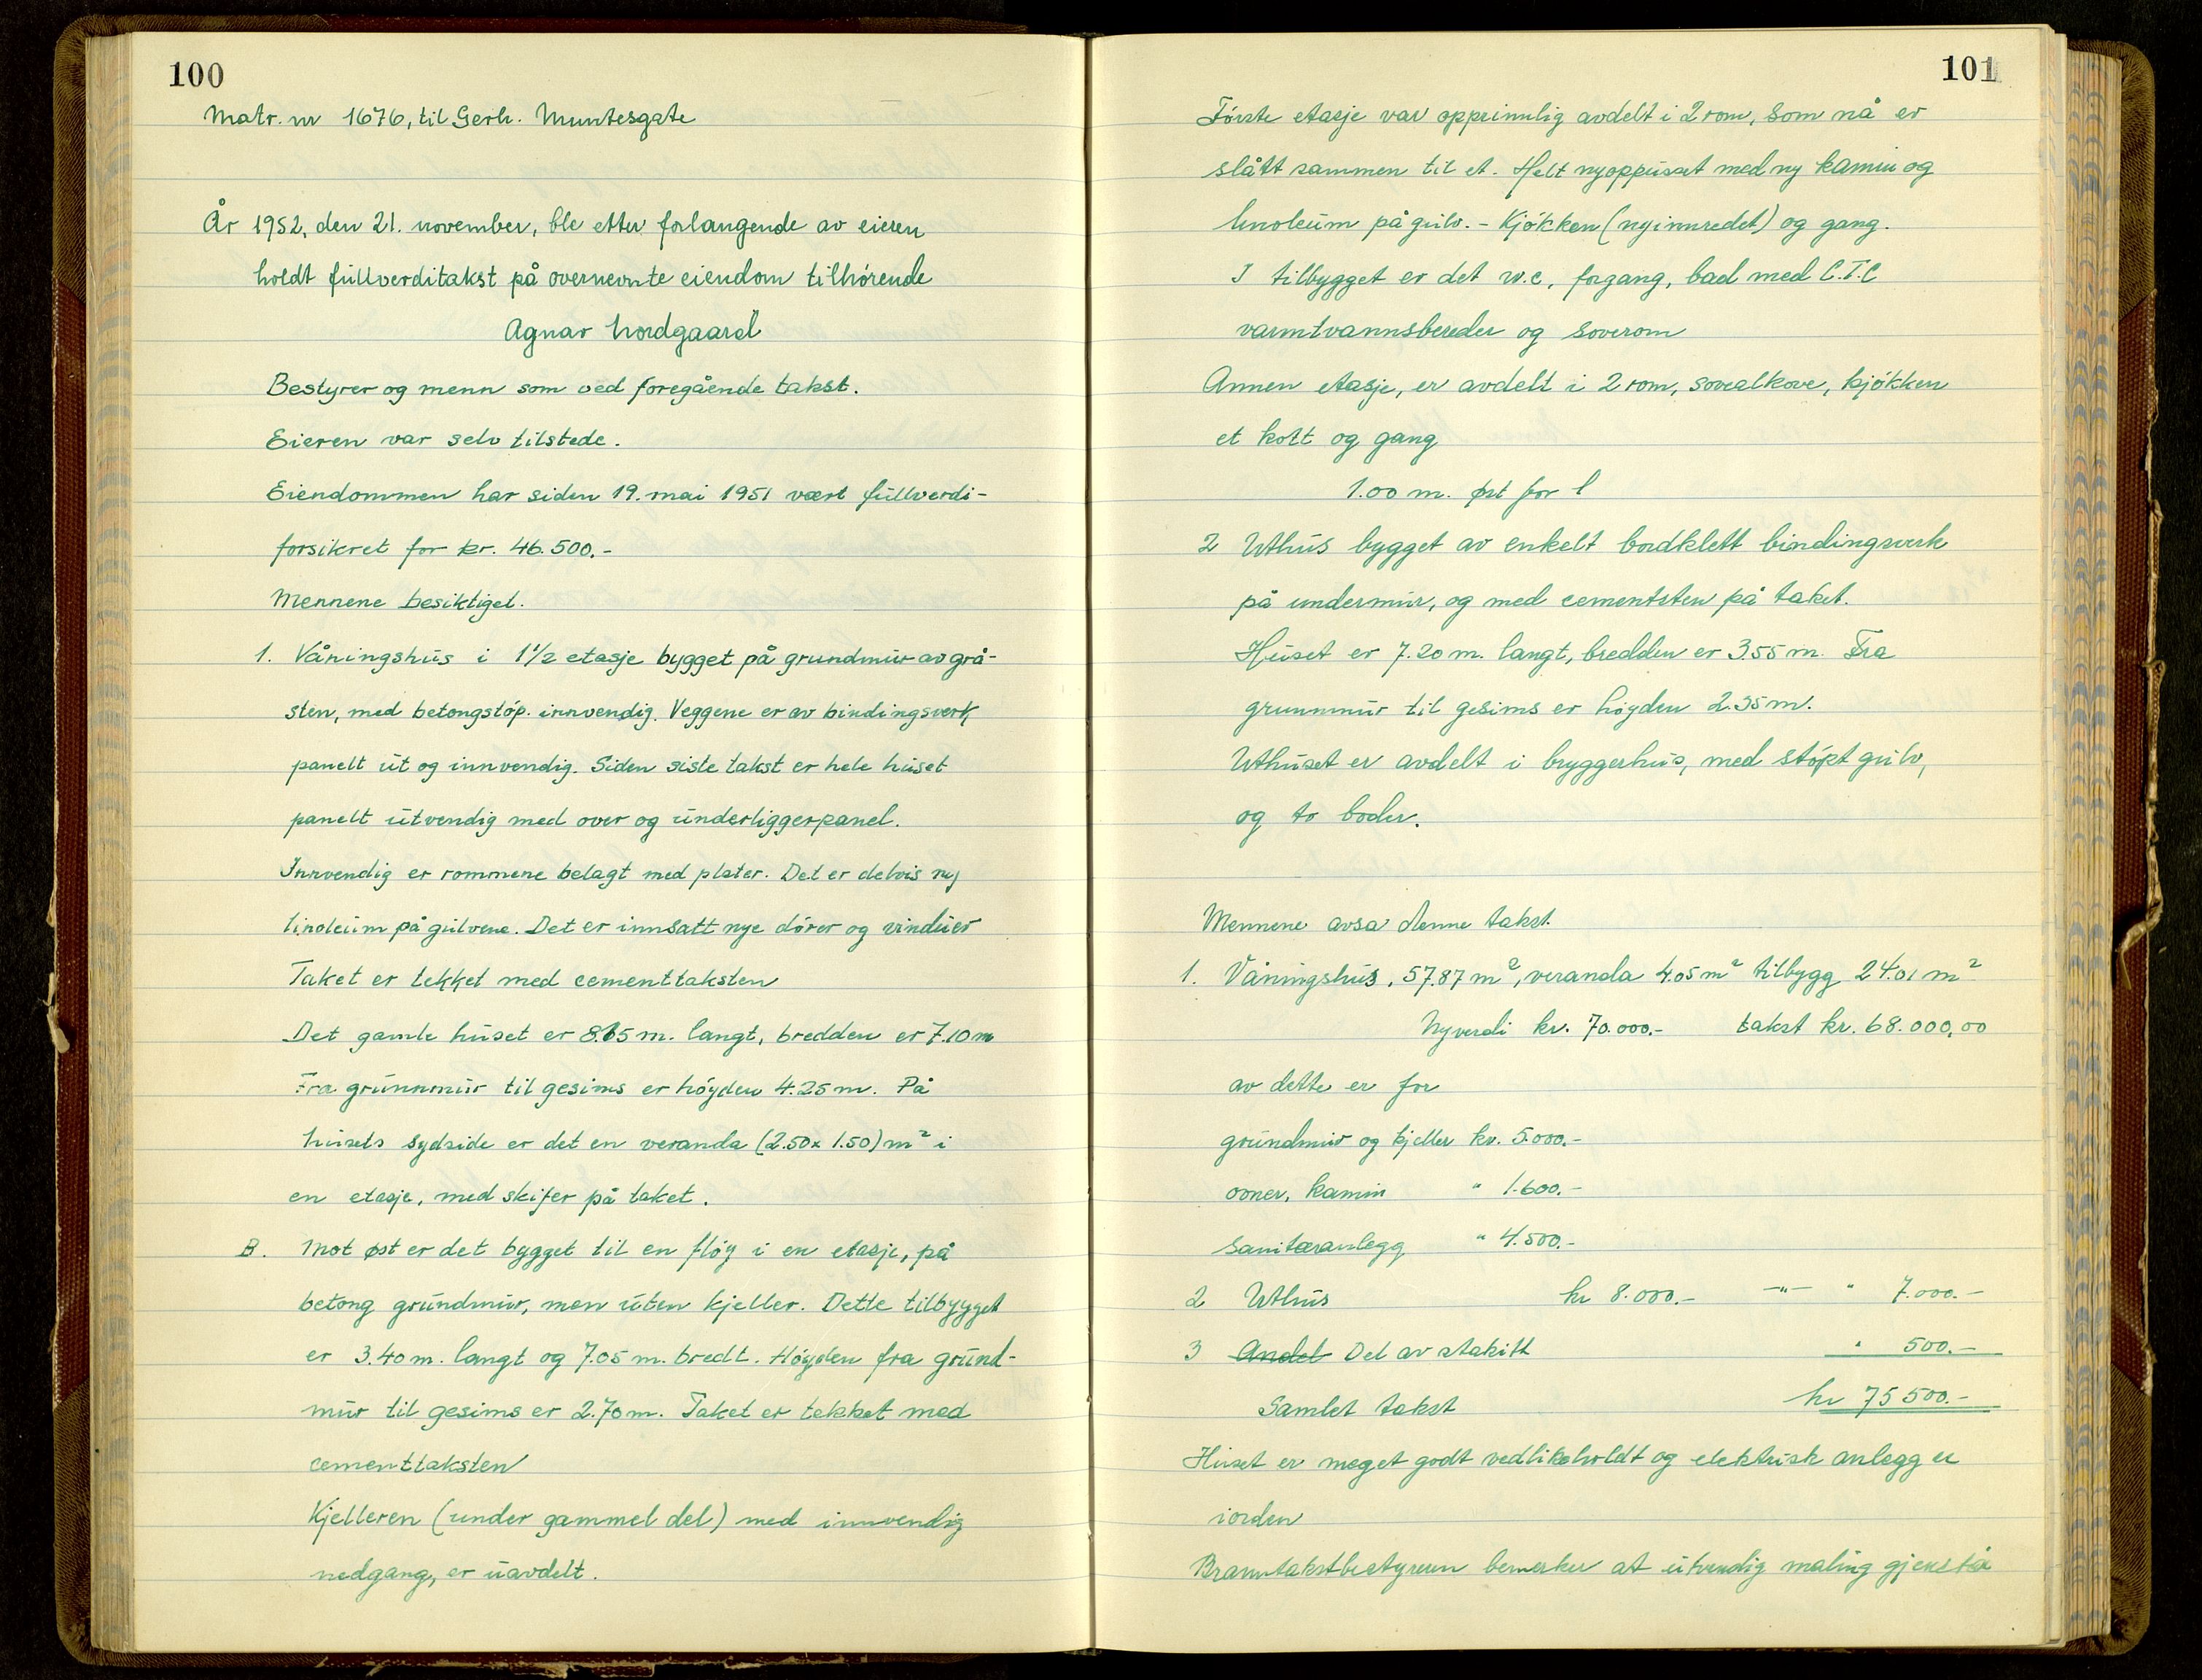 100
Matr. nr 1676, til Gerh. Muntesgate
År 1952, den 21. november, ble etter forlangende av eieren
holdt fullverditakst på overnevnte eiendom tilhørende
Agnar Nordgaard
Bestyrer og menn som ved foregående takst.
Eieren var selv tilstede.
Eiendommen har siden 19. mai 1951 vært fullverdi-
forsikret for kr. 46.500.-
Mennene besiktiget.
1. Våningshus i 1 1/2 etasje bygget på grundmur av grå-
sten, med betongstöp. innvendig. Veggene er av bindingsverk
panelt ut og innvendig. Siden siste takst er hele huset
panelt utvendig med over og underliggerpanel.
Innvendig er rommene belagt med plater. Det er delvis ny
linoleum på gulvene. Det er innsatt nye dörer og vinduer
Taket er tekket med cementtaksten
Det gamle huset er 8.15 m. langt, bredden er 7.10 m
Fra grunnmur til gesims er höyden 4.25 m. På
husets sydside er det en veranda (2.50 x 1.50) m² i
en etasje, med skifer på taket.
B. Mot øst er det bygget til en flöy i en etasje, på
betong grundmur, men uten kjeller. Dette tilbygget
er 3.40 m. langt og 7.05 m. bredt. Höyden fra grund-
mur til gesims er 2.70 m. Taket er tekket med
cementtaksten
Kjelleren (under gammel del) med innvendig
nedgang, er uavdelt.
101
Förste etasje var opprinnlig avdelt i 2 rom, som nå er
slått sammen til et. Helt nyoppusset med ny kamin og
linoleum på gulv. - Kjökken (nyinnredet) og gang.
I tilbygget er det w.c, forgang, bad med C.T.C
varmtvannsbereder og soverom
Annen etasje, er avdelt i 2 rom, sovealkove, kjökken
et kott og gang
1.00 m. øst for 1
2 Uthus bygget av enkelt bordklett bindingsverk
på undermur, og med cementsten på taket.
Huset er 7.20 m. langt, bredden er 3.55 m. Fra
grunnmur til gesims er höyden 2.35 m.
Uthuset er avdelt i bryggerhus, med stöpt gulv,
og to boder.
Mennene avsa denne takst.
1. Våningshus, 57.87 m², veranda 4.05 m² tilbygg 24.01 m²
Nyverdi kr. 70.000.- takst kr. 68.000,00
av dette er for
grundmur og kjeller kr. 5.000.-
ovner, kamin " 1.600.-
Sanitæranlegg " 4.500.-
2 Uthus kr 8.000.- -"- " 7.000.-
3 Andel Del av stakitt " 500.-
Samlet takst kr 75 500.-
Huset er meget godt vedlikeholdt og elektrisk anlegg er
iorden
Branntakstbestyreren bemerker at utvendig maling gjenstår